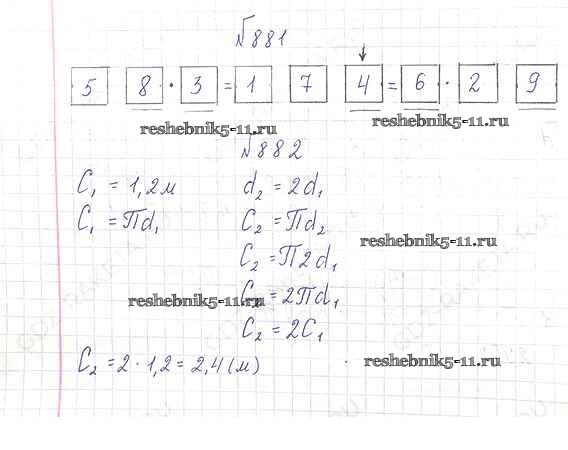 №881
↓
5 8 · 3 = 1 7 4 = 6 · 2 9
reshebnik5-11.ru reshebnik5-11.ru
№882
C₁ = 1,2м d₂ = 2d₁
C₁ = Пd₁ C₂ = Пd₂
reshebnik5-11.ru
C₂ = П2d₁
reshebnik5-11.ru C₂ = 2Пd₁
C₂ = 2C₁
C₂ = 2 · 1,2 = 2,4(м) reshebnik5-11.ru